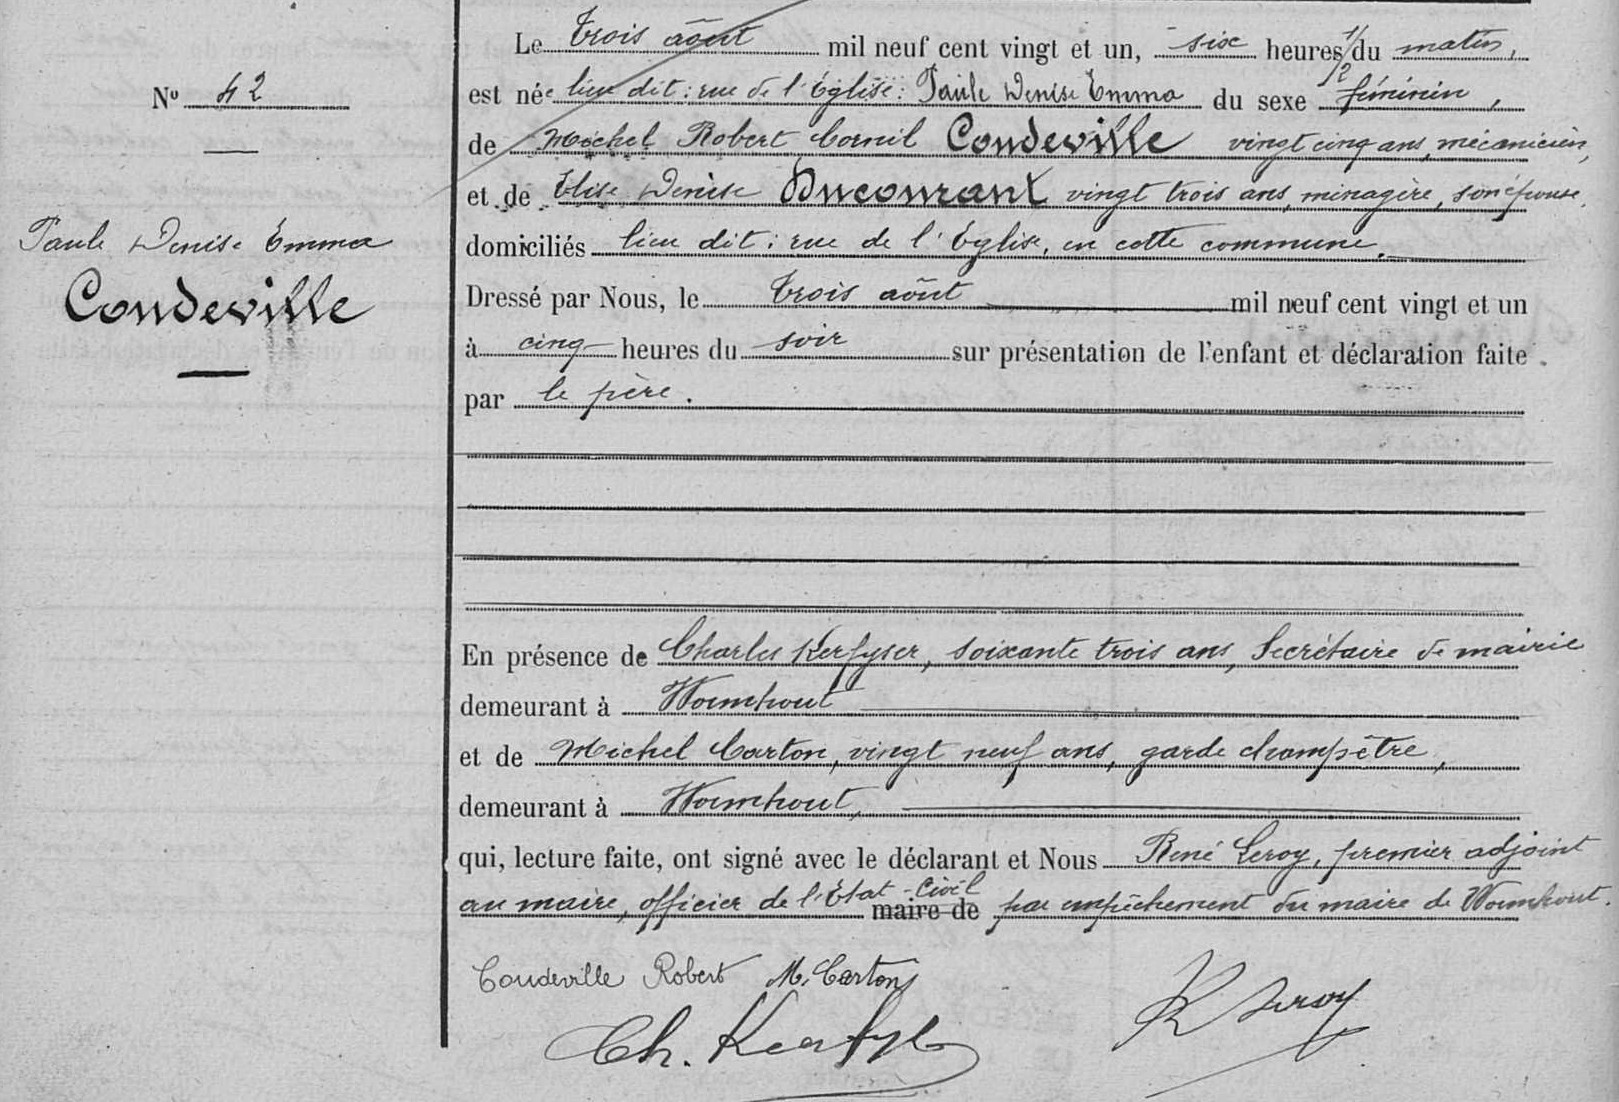 Le trois août mil neuf cent vingt et un, six heures 1/2 du matin,
N° 42
est née lieu dit : rue de l'Eglise : Paule Denise Emma du sexe féminin,
de Michel Robert Cornil Coudeville vingt cinq ans, mécanicien,
et de Elise Denise Ducourant vingt trois ans, ménagère, son épouse,
Paule Denise Emma
Coudeville
domiciliés lieu dit : rue de l'Eglise, en cette commune.
Dressé par Nous, le trois août mil neuf cent vingt et un
à cinq heures du soir sur présentation de l'enfant et déclaration faite
par le père.
En présence de Charles Kerfyser, soixante trois ans, Secrétaire de mairie
demeurant à Wormhout
et de Michel Carton, vingt neuf ans, garde champêtre,
demeurant à Wormhout,
qui, lecture faite, ont signé avec le déclarant et Nous René Leroy, premier adjoint
au maire, officier de l'Etat-Civil maire de par empêchement du maire de Wormhout.
Coudeville Robert M. Carton
Ch. R Leroy